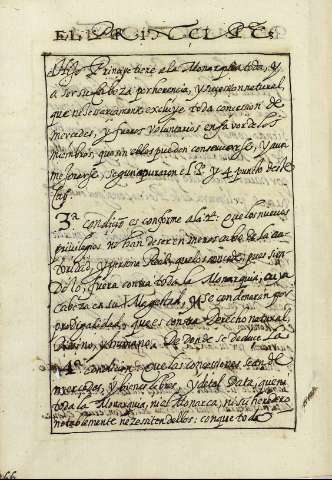 EL PRINCIPE
el Hijo Principe tiene a la Monarquia toda, y
a ser su Cabeza por herencia, y sucesion natural,
que necesariamente excluye toda concesion de
mercedes, y fueros voluntarios en favor de los
miembros, que sin ellos pueden conservarse, y aun
mejorarse, segun apuraron el 1º y 4 punto deste
3ª Condicion es conforme a la 2ª: Que los nuevos
privilegios no han de ser en menoscabo de la au
toridad, y persona Real, que los concede, pues sien
do lo, fuera contra toda la Monarquia, cuya
Cabeza en su Magestad, y se condenaran por
prodigalidad, que es contra Derecho natural,
Divino, y humano. De donde se deduce la
4ª condicion: Que las concesiones sean de
mercedes, y bienes libres, y de tal Data, que ni
toda la Monarquia, ni el Monarca, ni su heredero
notablemente necesiten dellos: conque toda